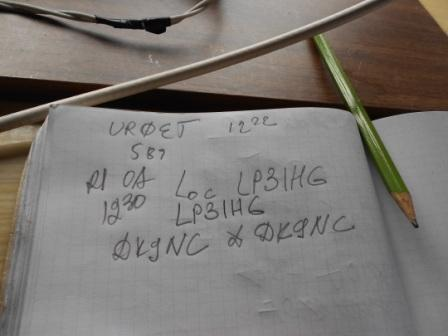 UR0ET 1222
589
R1 0A Loc LP31HG
1230 LP31HG
DK9NC & DK9NC